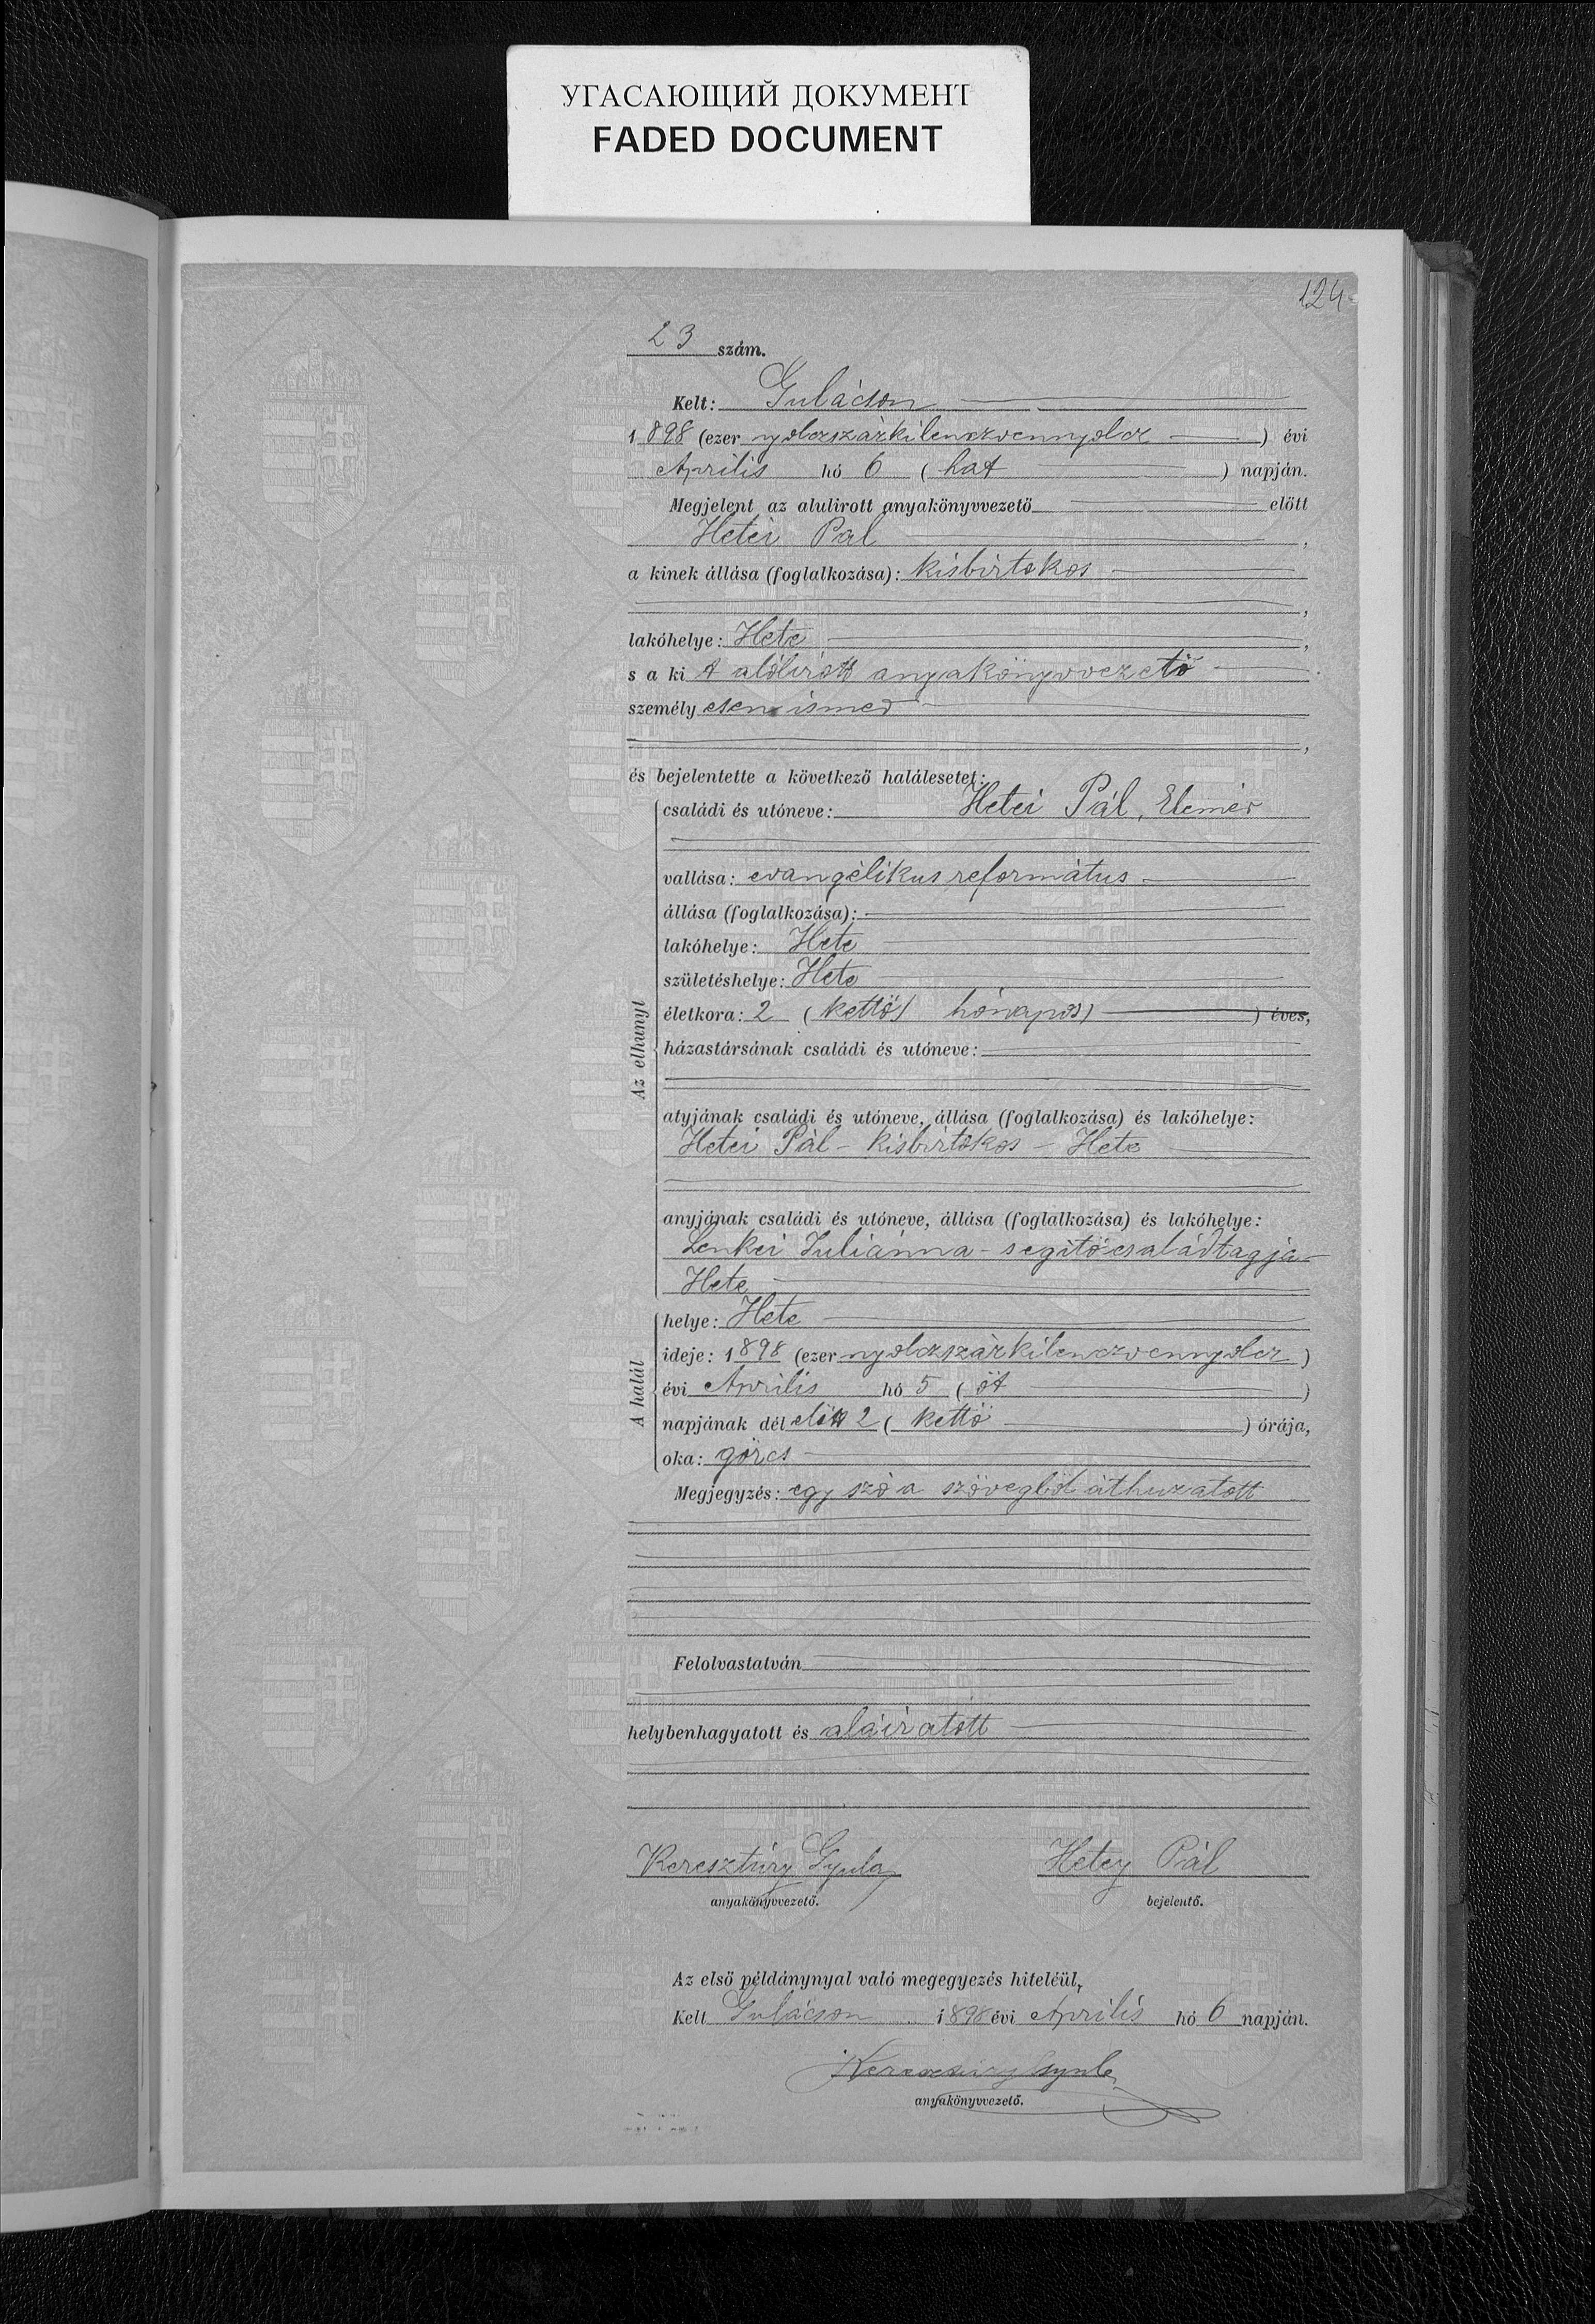 УГАСАЮЩИЙ ДОКУМЕНТ
FADED DOCUMENT
124
23 szám.
Kelt: Gulácson
1898 (ezer nyolczszázkilenczvennyolcz) évi
Április hó 6 (hat) napján.
Megjelent az alulirott anyakönyvvezető előtt
Hetei Pál,
a kinek állása (foglalkozása): kisbirtokos
,
lakóhelye: Hete,
s a ki A alólirott anyakönyvvezető
személyesen ismer
,
és bejelentette a következő halálesetet:
Az elhunyt
családi és utóneve: Hetei Pál, Elemér
vallása: evangélikus református
állása (foglalkozása):
lakóhelye: Hete
születéshelye: Hete
életkora: 2 (kettő) hónapos) ) éves,
házastársának családi és utóneve:
atyjának családi és utóneve, állása (foglalkozása) és lakóhelye:
Hetei Pál - kisbirtokos - Hete
anyjának családi és utóneve, állása (foglalkozása) és lakóhelye:
Lenkei Juliánna - segitő családtagja -
Hete
A halál
helye: Hete
ideje: 1898 (ezer nyolczszázkilenczvennyolcz)
évi Április hó 5 (öt)
napjának dél előtt 2 (kettő) órája,
oka: görcs
Megjegyzés: egy szó a szövegből áthuzatott
Felolvastatván
helybenhagyatott és aláiratott
Keresztúry Gyula Hetey Pál
anyakönyvvezető. bejelentő.
Az első példánynyal való megegyezés hiteléül,
Kelt Gulácson 1898 évi Április hó 6 napján.
Keresztúry Gyula
anyakönyvvezető.